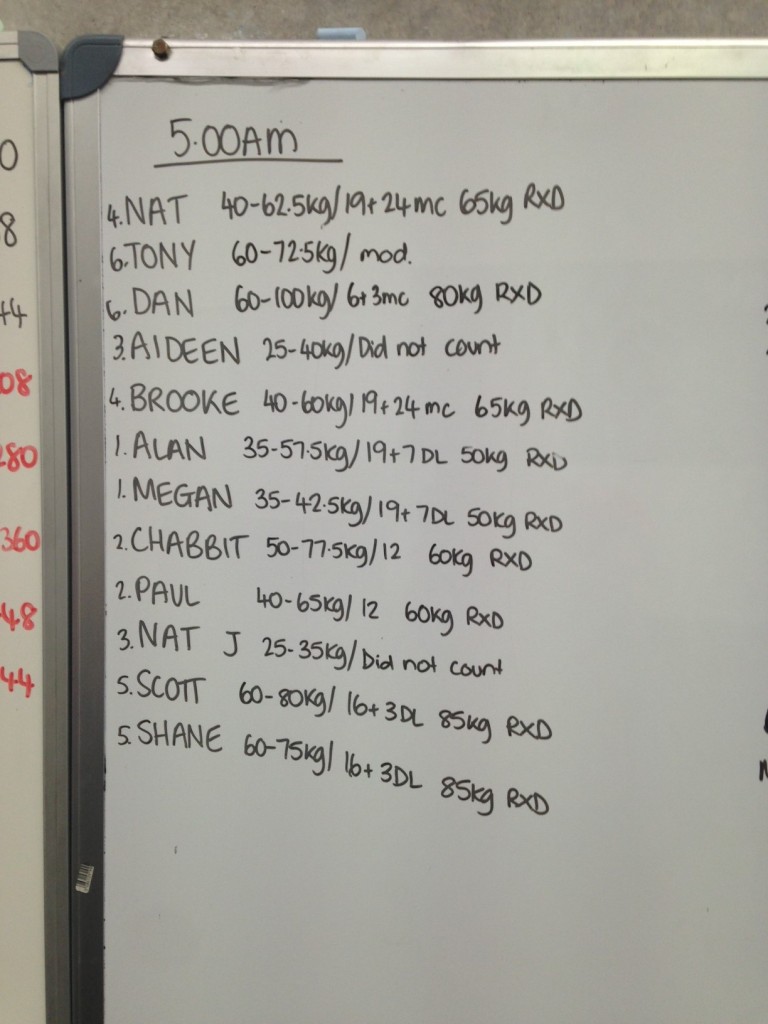 5.00AM
4. NAT 40-62.5kg/19+24mc 65kg RXD
6. TONY 60-72.5kg/ mod.
6. DAN 60-100kg/ 6+3mc 80kg RXD
3. AIDEEN 25-40kg/Did not count
4. BROOKE 40-60kg/19+24mc 65kg RXD
1. ALAN 35-57.5kg/19+7DL 50kg RXD
1. MEGAN 35-42.5kg/19+7DL 50kg RXD
2. CHABBIT 50-77.5kg/12 60kg RXD
2. PAUL 40-65kg/12 60kg RXD
3. NAT J 25-35kg/Did not count
5. SCOTT 60-80kg/ 16+3DL 85kg RXD
5. SHANE 60-75kg/ 16+3DL 85kg RXD
0
8
44
08
280
360
48
44